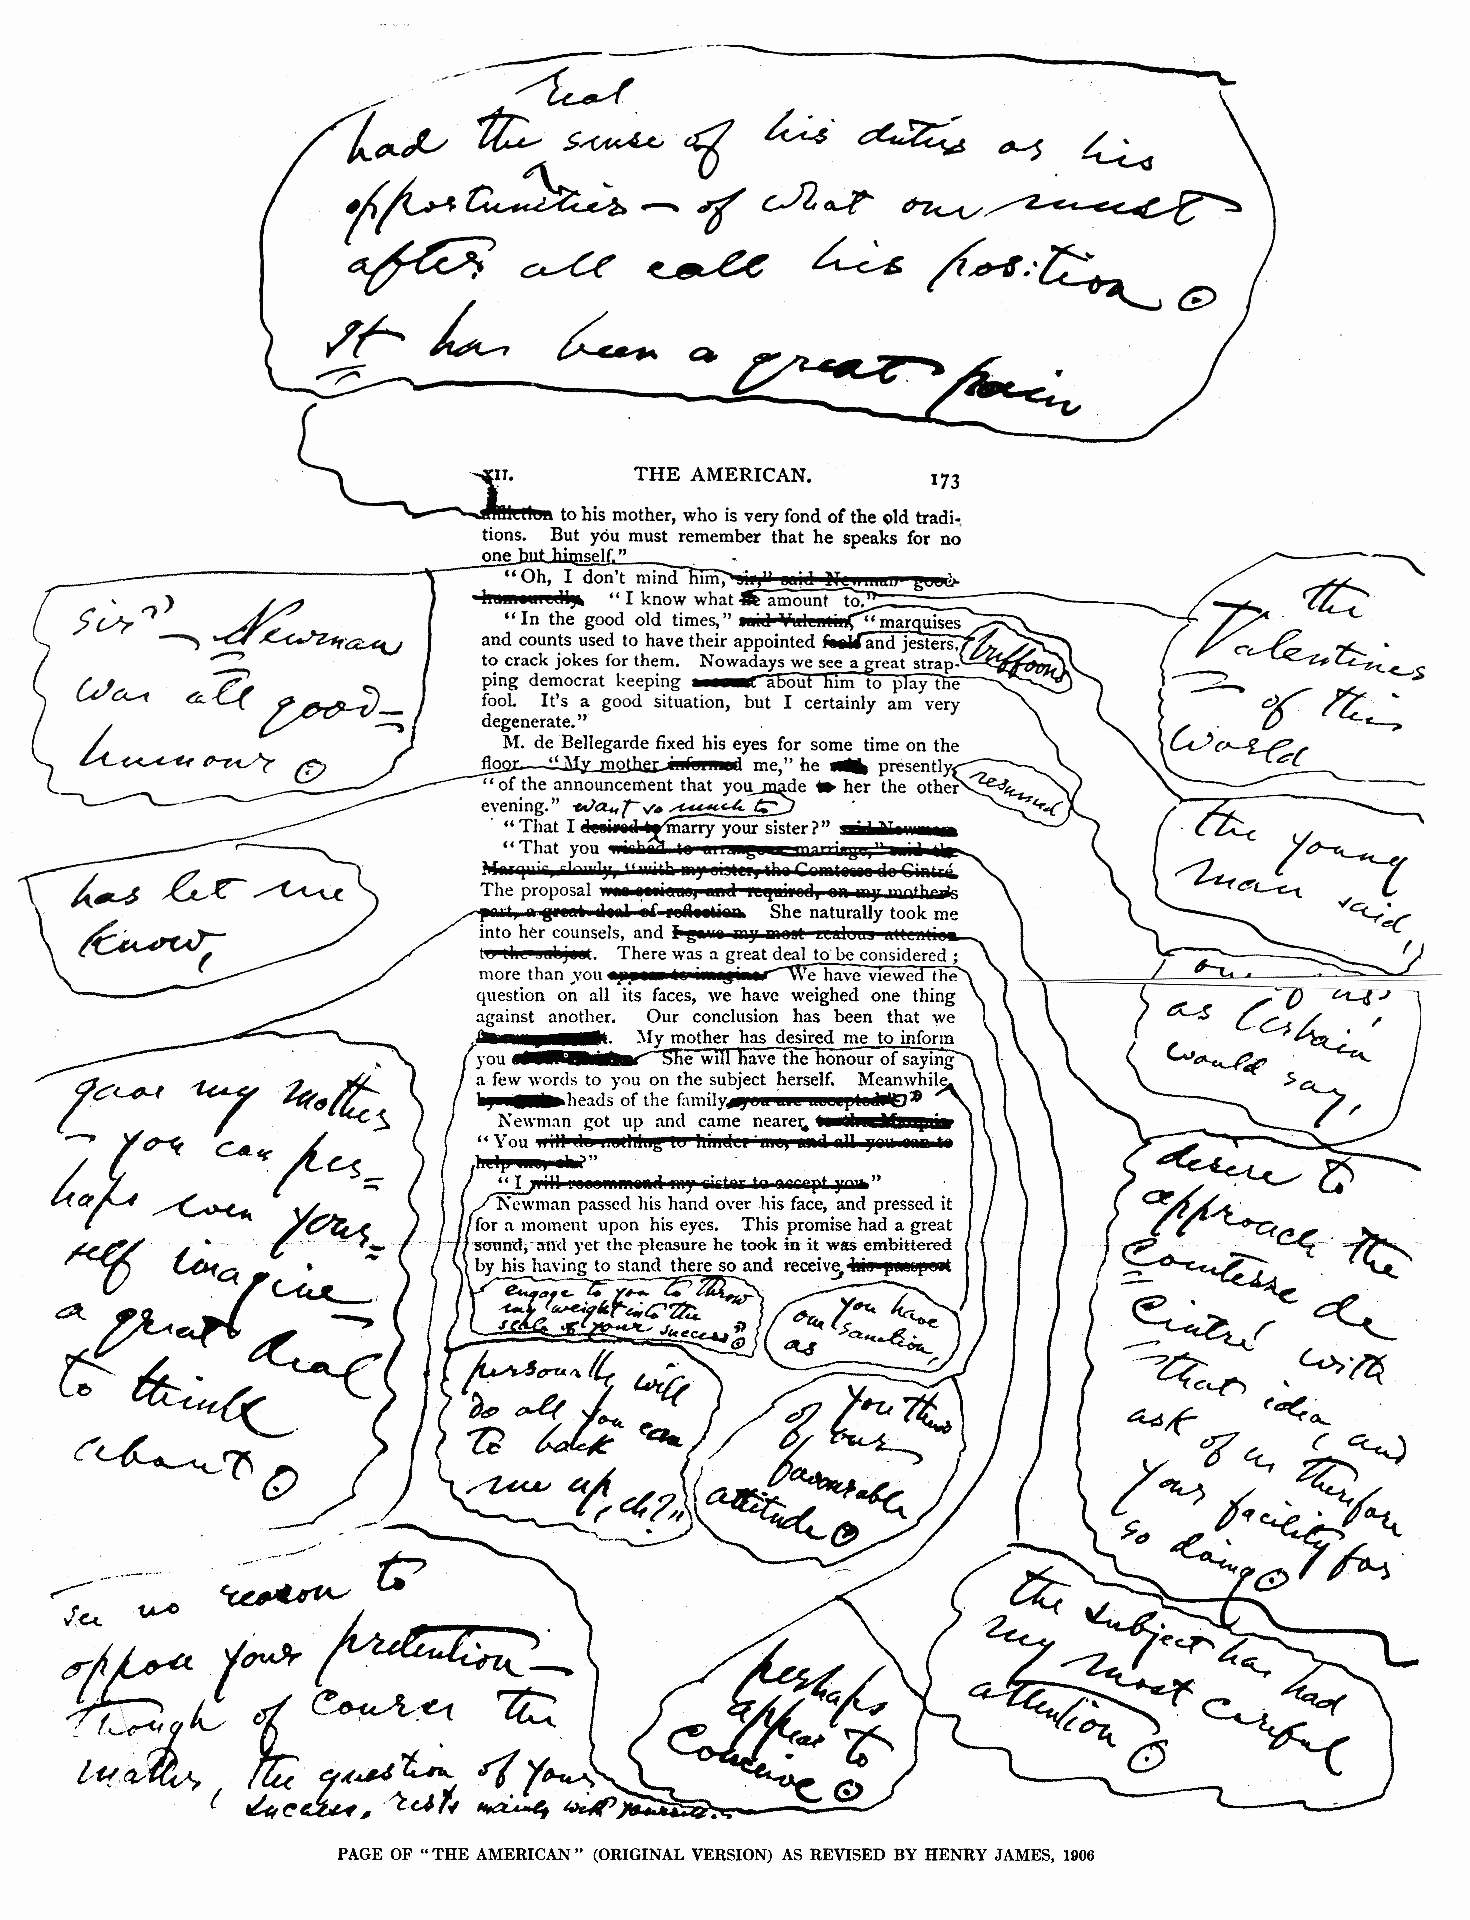 real
had the sense of his duties as his
opportunities — of what one must
after all call his position.
It has been a great pain
XII. THE AMERICAN. 173
affliction to his mother, who is very fond of the old tradi-
tions. But you must remember that he speaks for no
one but himself."
"Oh, I don't mind him, sir," said Newman good-
humouredly. "I know what he amount to."
"In the good old times," said Valentin, "marquises
and counts used to have their appointed fools and jesters,
to crack jokes for them. Nowadays we see a great strap-
ping democrat keeping about him to play the
fool. It's a good situation, but I certainly am very
degenerate."
M. de Bellegarde fixed his eyes for some time on the
floor. "My mother informed me," he said presently,
"of the announcement that you made to her the other
evening." want so much to
"That I desired to marry your sister?" said Newman
"That you wished to arrange a marriage," said the
Marquis, slowly, "with my sister, the Comtesse de Cintré.
The proposal was serious, and required, on my mother's
part, a great deal of reflection. She naturally took me
into her counsels, and I gave my most zealous attention
to the subject. There was a great deal to be considered;
more than you appear to imagine. We have viewed the
question on all its faces, we have weighed one thing
against another. Our conclusion has been that we
. My mother has desired me to inform
you She will have the honour of saying
a few words to you on the subject herself. Meanwhile,
heads of the family, you are accepted."
Newman got up and came nearer. to the Marquis
"You will do nothing to hinder me, and all you can to
help me, eh?"
"I will recommend my sister to accept you."
Newman passed his hand over his face, and pressed it
for a moment upon his eyes. This promise had a great
sound, and yet the pleasure he took in it was embittered
by his having to stand there so and receive, his passport
sir" — Newman
was all good-
humour.
has let me
know,
gave my mother
— you can per-
haps even your-
self imagine —
a great deal
to think
about.
see no reason to
oppose your pretention —
though of course the
matter, the question of your
success, rests mainly with yourself.
buffoons
resumed
the
Valentins
of this
world
the young
man said,
one of us,
as Urbain
would say,
desire to
approach the
Comtesse de
Cintré with
that idea, and
ask of us therefore
your facility for
so doing.
the subject has had
my most careful
attention.
engage to you to throw
my weight into the
scale of your success".
you have
our sanction,
as
personally will
do all you can
to back
me up, eh?"
you thus
of our
favourable
attitude.
perhaps
appear to
conceive.
PAGE OF "THE AMERICAN" (ORIGINAL VERSION) AS REVISED BY HENRY JAMES, 1906